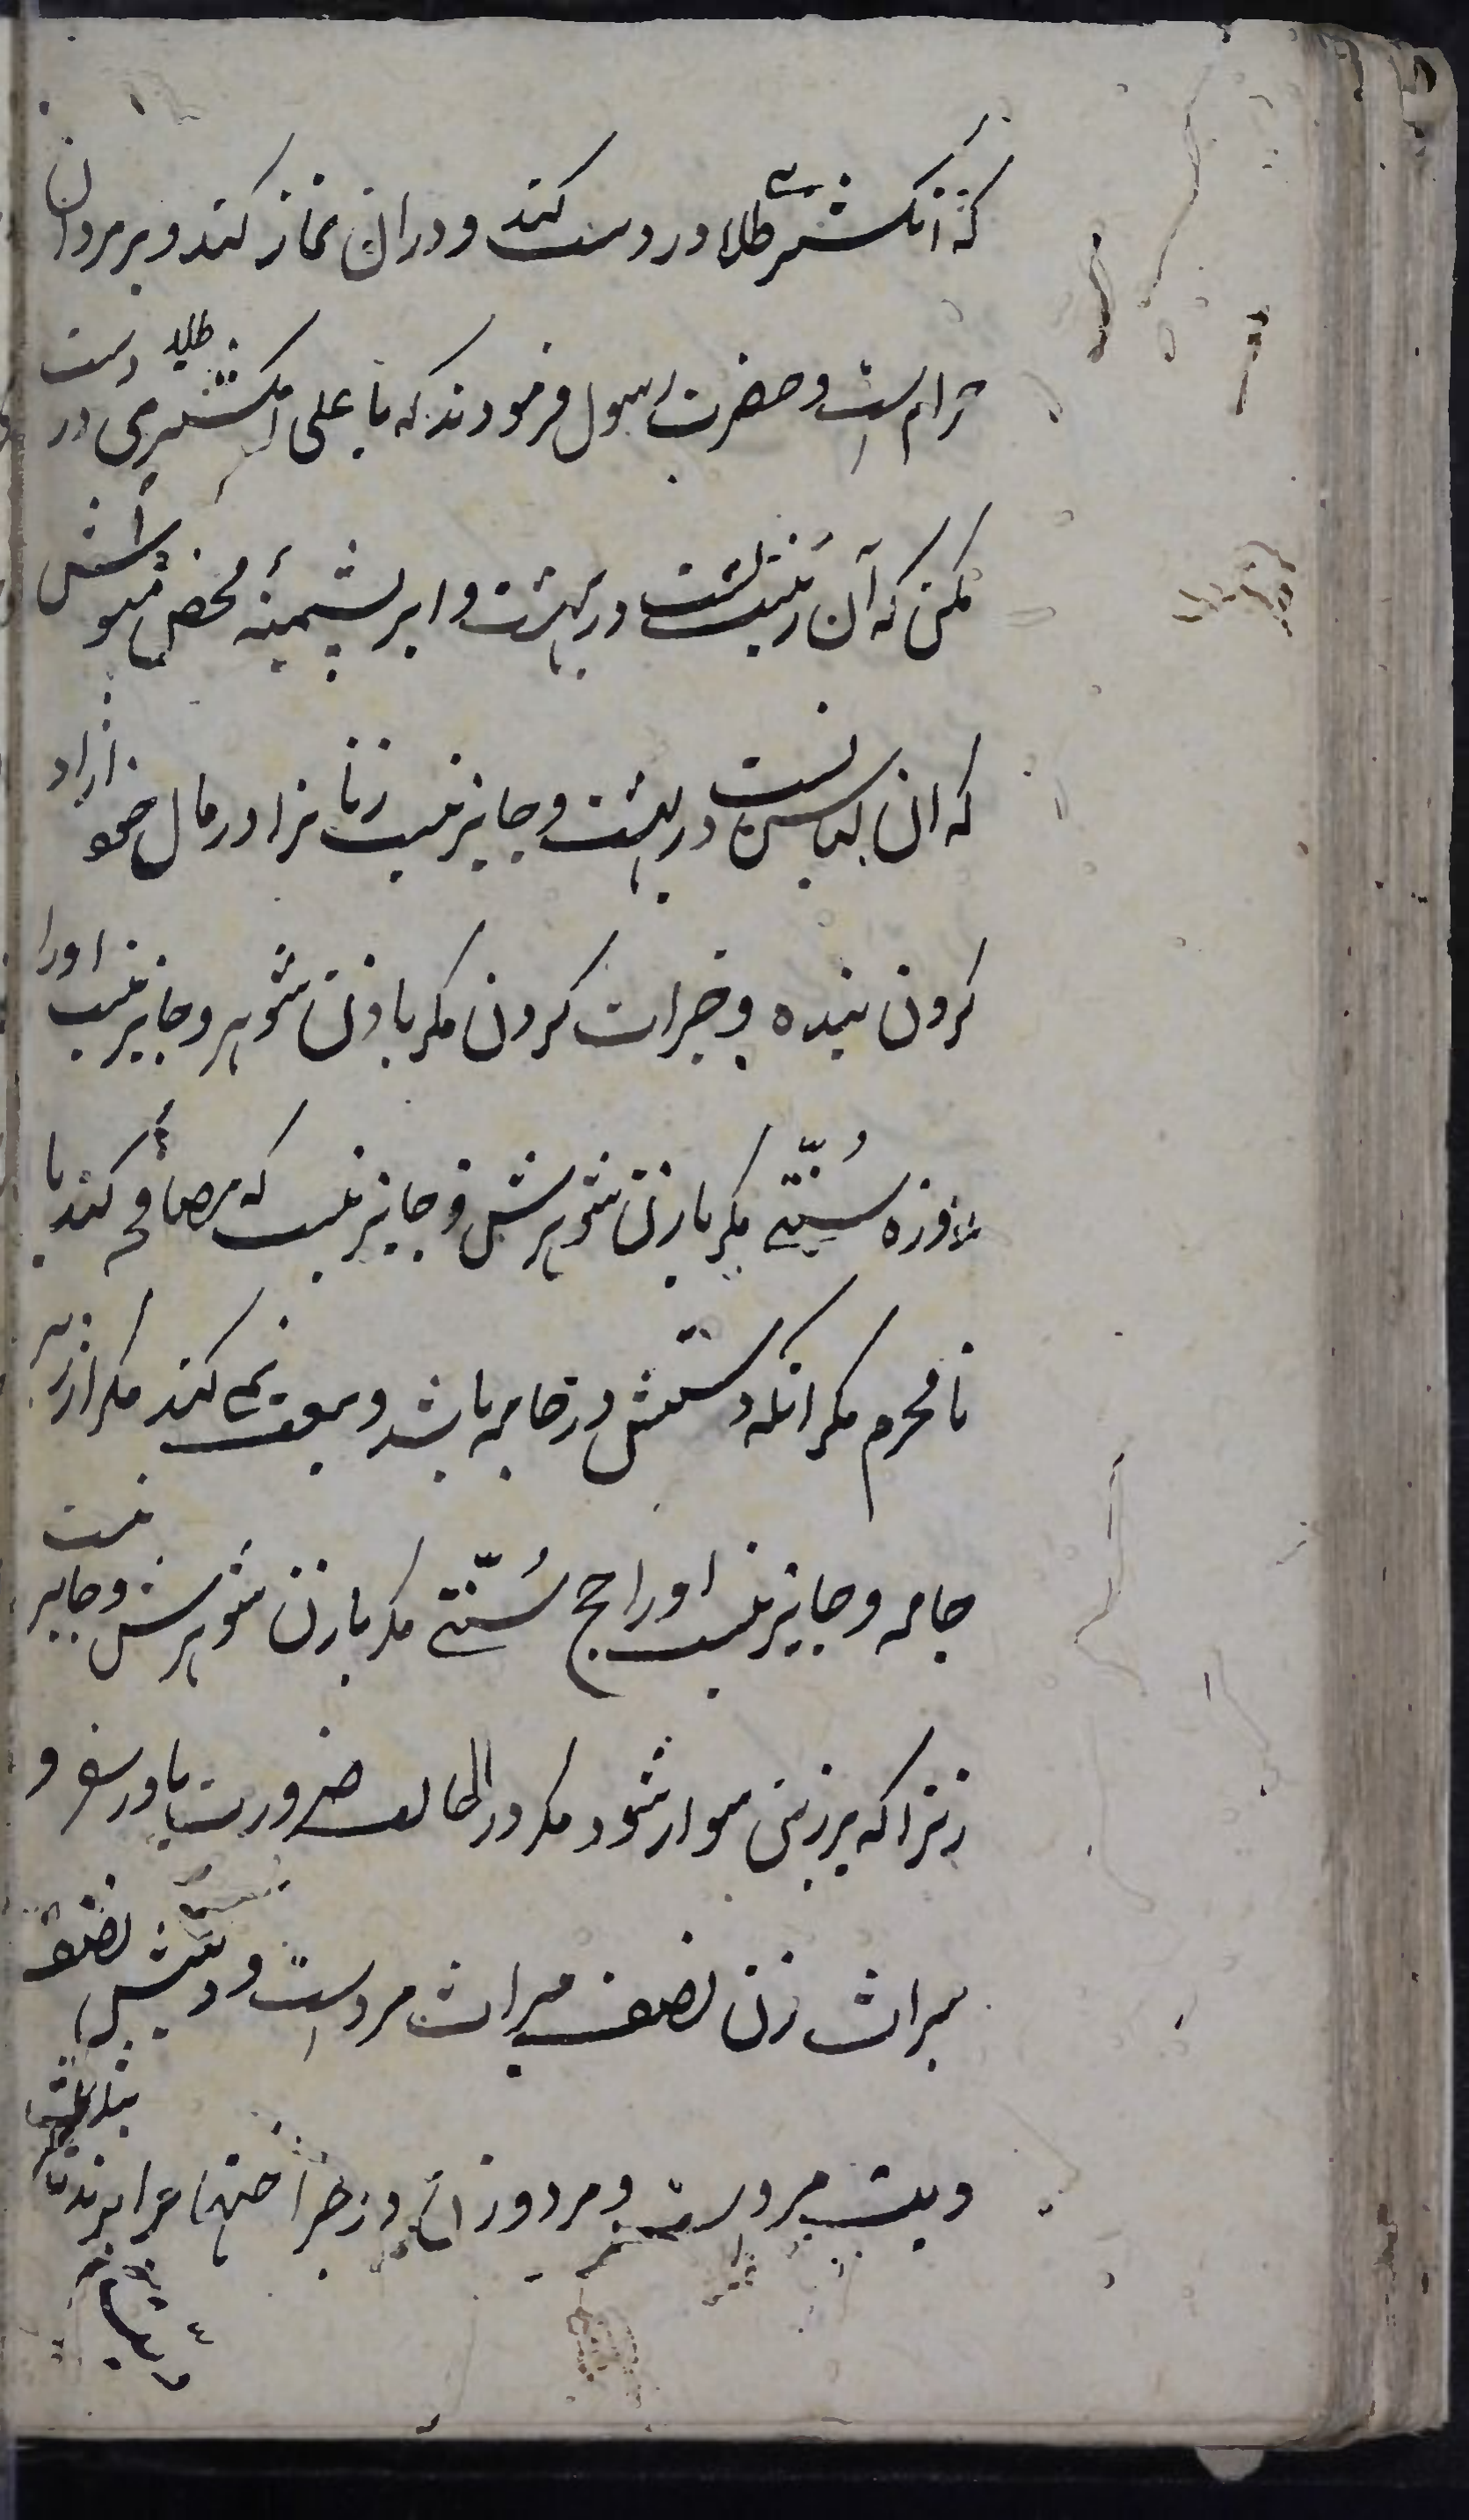 که انگشتری طلا در دست کند و در ان نماز کند و بر مردان
حرام است و حضرت رسول فرمودند که یا علی انگشتری طلا در دست
مکن که آن زینتست در بهشت و ابریشمینه محض مپوش
که ان لباس تست در بهشت و جایز نیست زنانرا در مال خود ازاد
کردن بنده و خیرات کردن مگر باذن شوهر و جایز نیست اورا
روزه سُنّتی مگر باذن شوهرش و جایز نیست که مصافحه کند با
نامحرم مگر انکه دستش در جامه باشد و بیعت نمی کند مگر از زیر
جامه و جایز نیست اورا حج سُنّتی مگر باذن شوهرش و جایز نیست
زنرا که بر زین سوار شود مگر در حالت ضرورت یا در سفر و
میراث زن نصف میراث مرد است و دیتش نصف
دیت مرد است و مرد و زن در جراحتها برابرند تا بثلث